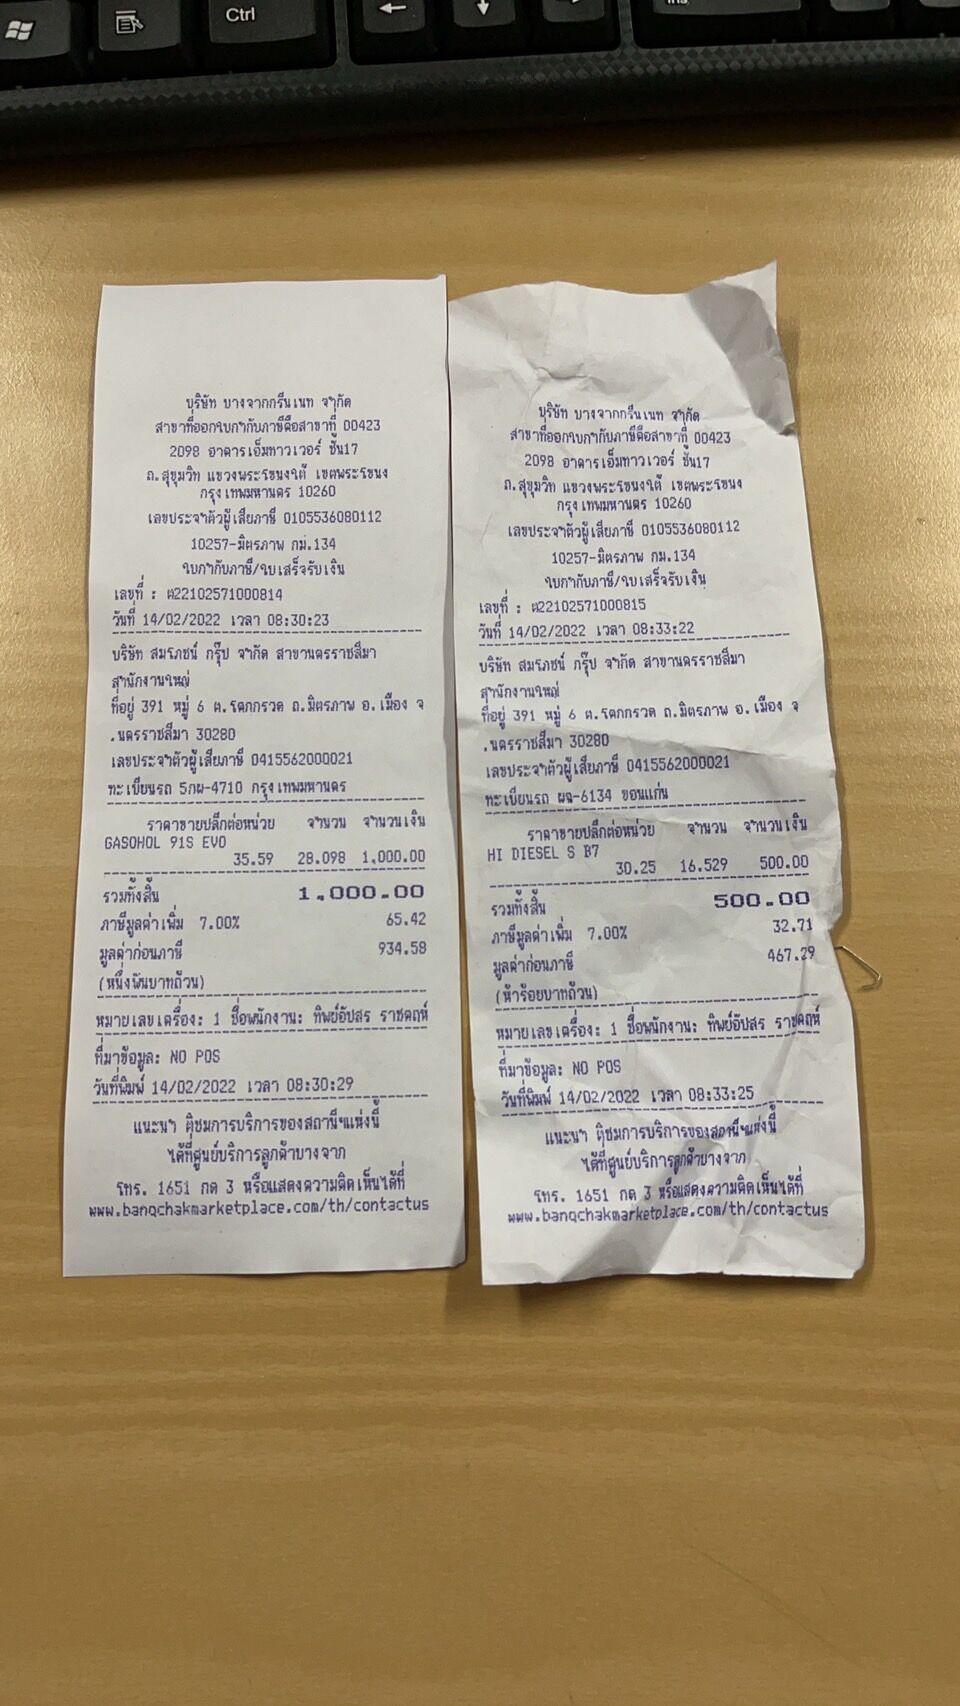 Ctrl
Ins
บริษัท บางจากกรีนเนท จำกัด
สาขาที่ออกใบกำกับภาษีคือสาขาที่ 00423
2098 อาคารเอ็มทาวเวอร์ ชั้น17
ถ.สุขุมวิท แขวงพระโขนงใต้ เขตพระโขนง
กรุงเทพมหานคร 10260
เลขประจำตัวผู้เสียภาษี 0105536080112
10257-มิตรภาพ กม.134
ใบกำกับภาษี/ใบเสร็จรับเงิน
เลขที่ : ต22102571000814
วันที่ 14/02/2022 เวลา 08:30:23
บริษัท สมโภชน์ กรุ๊ป จำกัด สาขานครราชสีมา
สำนักงานใหญ่
ที่อยู่ 391 หมู่ 6 ต.โคกกรวด ถ.มิตรภาพ อ.เมือง จ
.นครราชสีมา 30280
เลขประจำตัวผู้เสียภาษี 0415562000021
ทะเบียนรถ 5กผ-4710 กรุงเทพมหานคร
ราคาขายปลีกต่อหน่วย จำนวน จำนวนเงิน
GASOHOL 91S EVO
35.59 28.098 1,000.00
รวมทั้งสิ้น 1,000.00
ภาษีมูลค่าเพิ่ม 7.00% 65.42
มูลค่าก่อนภาษี 934.58
(หนึ่งพันบาทถ้วน)
หมายเลขเครื่อง: 1 ชื่อพนักงาน: ทิพย์อัปสร ราชคฤห์
ที่มาข้อมูล: NO POS
วันที่พิมพ์ 14/02/2022 เวลา 08:30:29
แนะนำ ติชมการบริการของสถานีฯแห่งนี้
ได้ที่ศูนย์บริการลูกค้าบางจาก
โทร. 1651 กด 3 หรือแสดงความคิดเห็นได้ที่
www.bangchakmarketplace.com/th/contactus
บริษัท บางจากกรีนเนท จำกัด
สาขาที่ออกใบกำกับภาษีคือสาขาที่ 00423
2098 อาคารเอ็มทาวเวอร์ ชั้น17
ถ.สุขุมวิท แขวงพระโขนงใต้ เขตพระโขนง
กรุงเทพมหานคร 10260
เลขประจำตัวผู้เสียภาษี 0105536080112
10257-มิตรภาพ กม.134
ใบกำกับภาษี/ใบเสร็จรับเงิน
เลขที่ : ต22102571000815
วันที่ 14/02/2022 เวลา 08:33:22
บริษัท สมโภชน์ กรุ๊ป จำกัด สาขานครราชสีมา
สำนักงานใหญ่
ที่อยู่ 391 หมู่ 6 ต.โคกกรวด ถ.มิตรภาพ อ.เมือง จ
.นครราชสีมา 30280
เลขประจำตัวผู้เสียภาษี 0415562000021
ทะเบียนรถ ผฉ-6134 ขอนแก่น
ราคาขายปลีกต่อหน่วย จำนวน จำนวนเงิน
HI DIESEL S B7
30.25 16.529 500.00
รวมทั้งสิ้น 500.00
ภาษีมูลค่าเพิ่ม 7.00% 32.71
มูลค่าก่อนภาษี 467.29
(ห้าร้อยบาทถ้วน)
หมายเลขเครื่อง: 1 ชื่อพนักงาน: ทิพย์อัปสร ราชคฤห์
ที่มาข้อมูล: NO POS
วันที่พิมพ์ 14/02/2022 เวลา 08:33:25
แนะนำ ติชมการบริการของสถานีฯแห่งนี้
ได้ที่ศูนย์บริการลูกค้าบางจาก
โทร. 1651 กด 3 หรือแสดงความคิดเห็นได้ที่
www.bangchakmarketplace.com/th/contactus